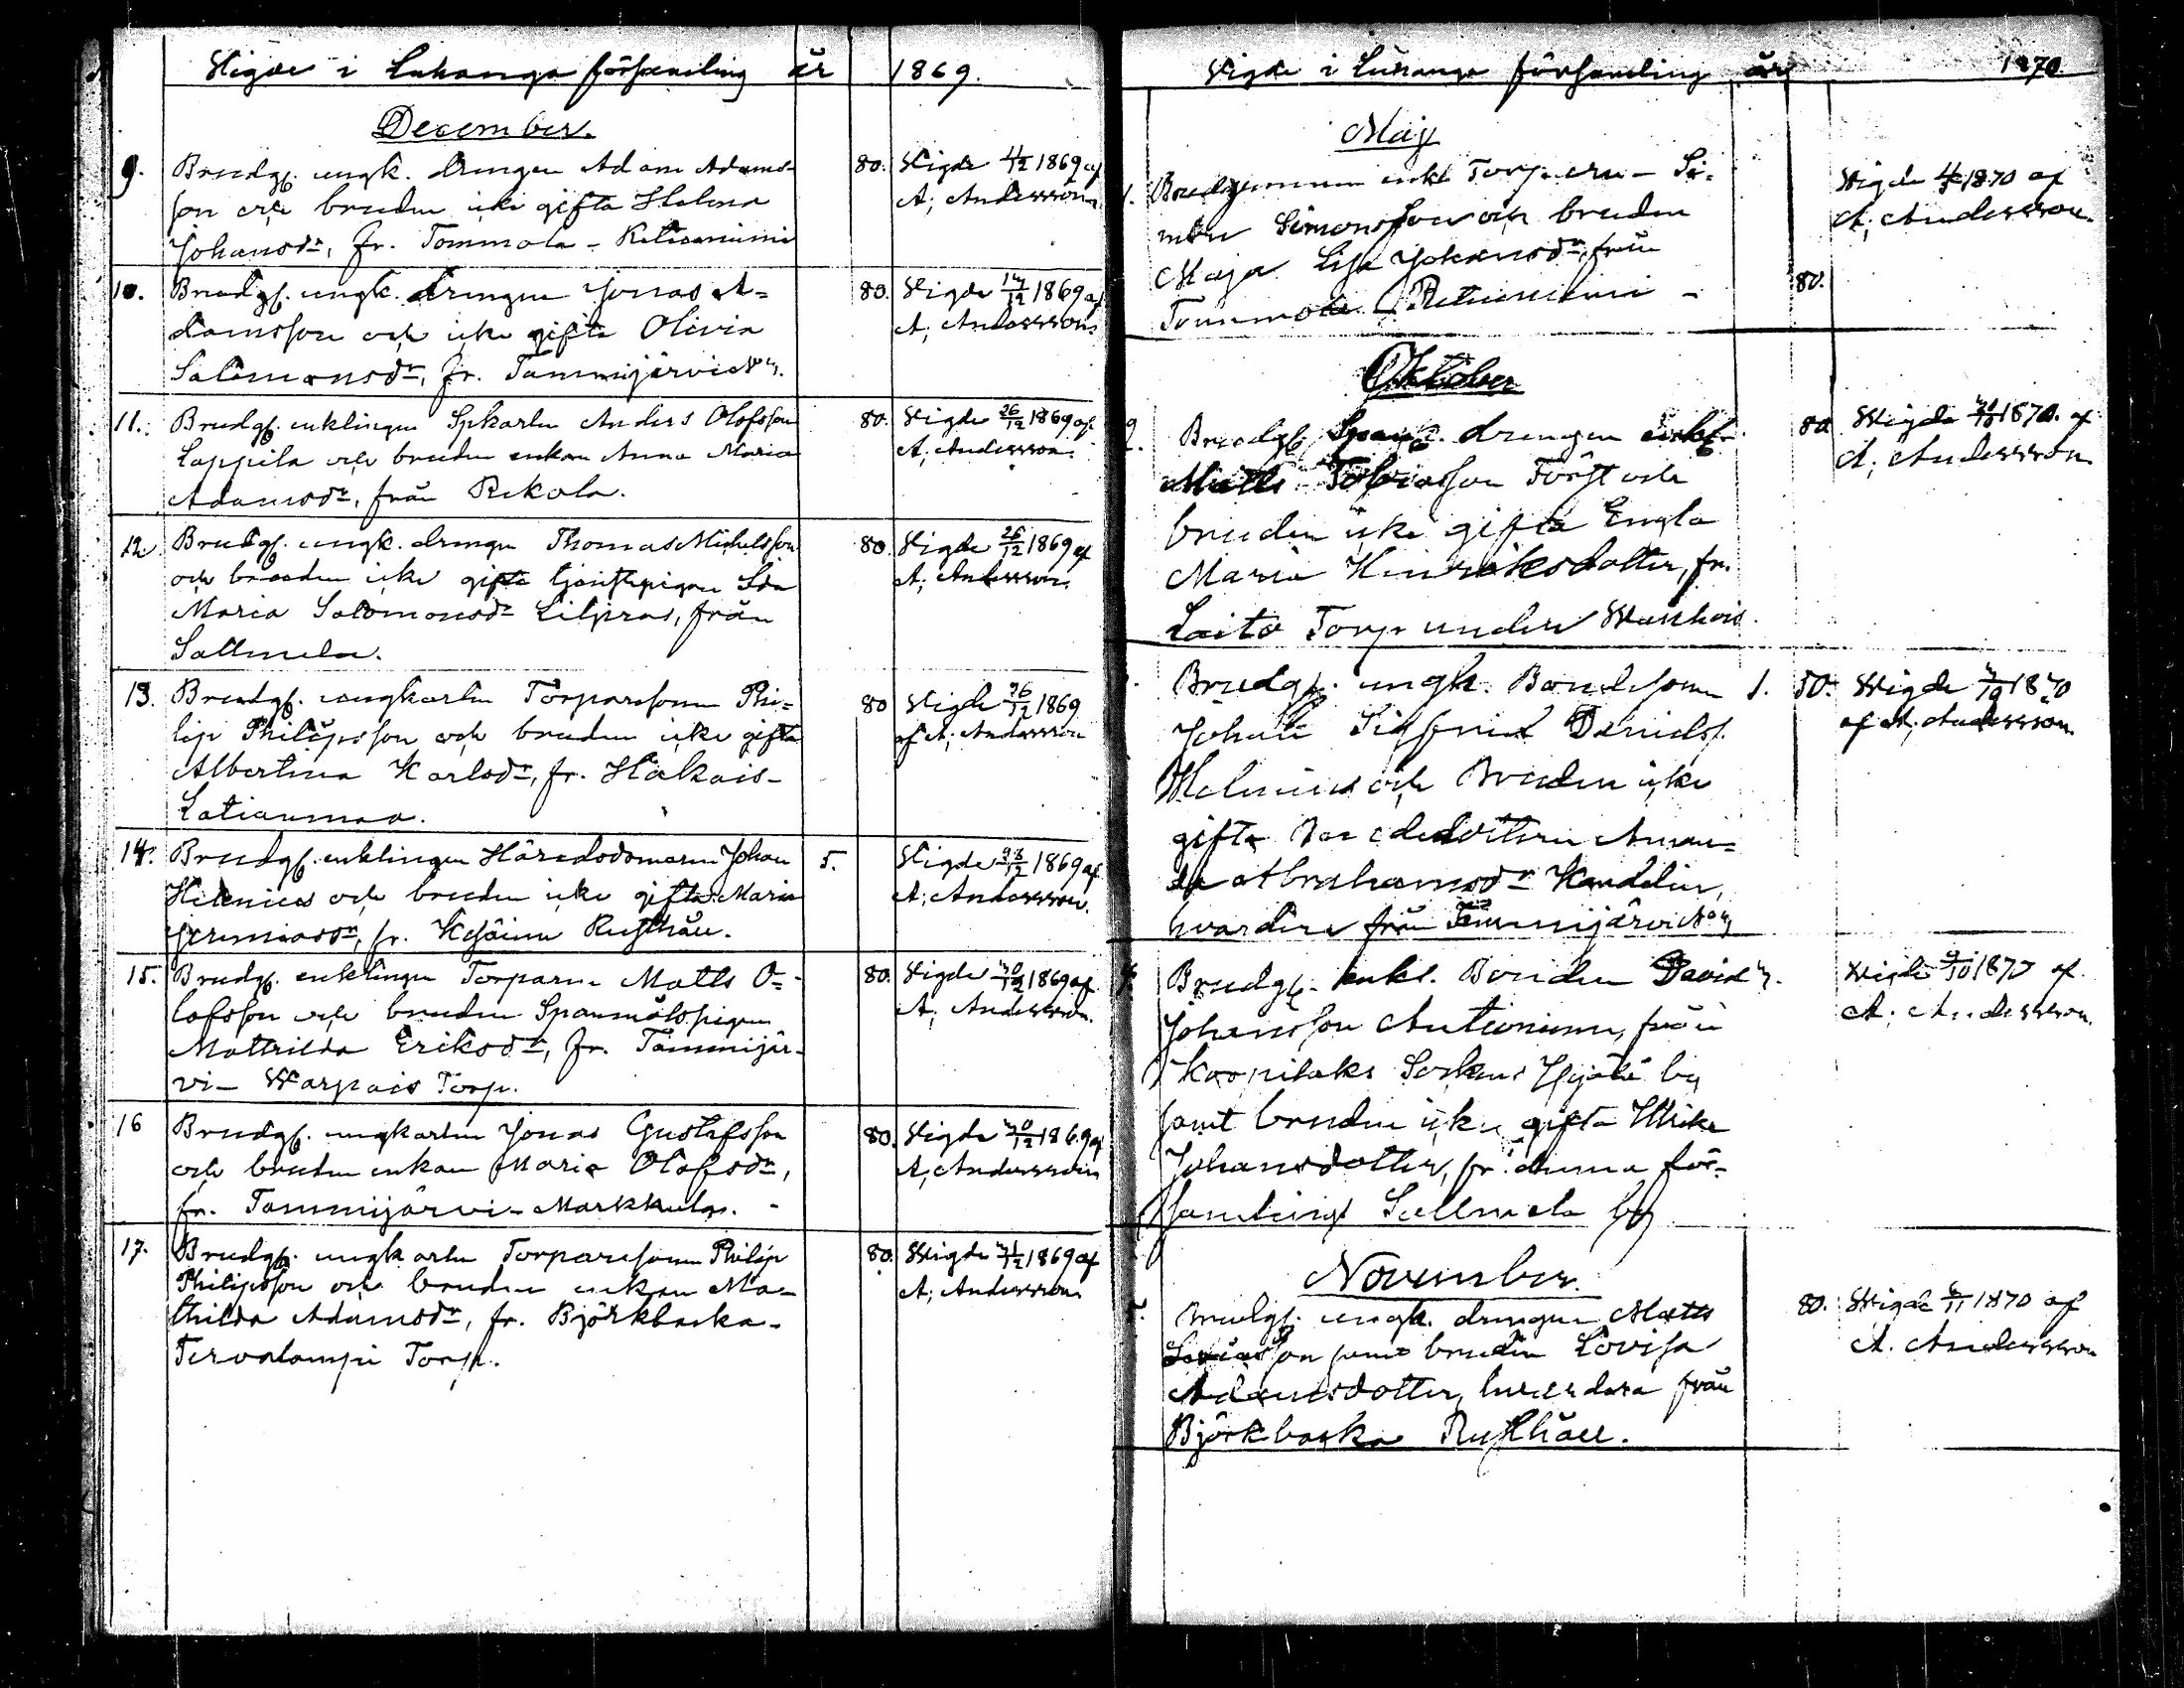 Wigde i Luhanga församling år 1869.
December.
9. Brudg. ungk. drengen Adam Adams-
son och bruden icke gifta Helena
Johansdr, fr. Tommola - Retiesniemi
80. Wigde 4/12 1869 af
A; Andersson
10. Brudg. ungk. drengen Jonas A=
damsson och icke gifta Olivia
Salomonsdr, fr. Tammijärvi
80. Wigde 1869 af
A; Andersson
11. Brudg. enklingen Spkarlen Anders Olofsson
Lappila och bruden enkan Anna Maria
Adamsdr, från Rekola.
80. Wigde 26/12 1869 af
A; Andersson
12 Brudg. ungk. drengen Thomas Michelsson
och bruden icke gifta tjenstepigan Ida
Maria Salomonsdr Liljeros, från
Sallmela.
80 Wigde 26/12 1869 af
A; Andersson
13. Brudg. ungkarlen Torparesonen Phi=
lip Philipsson och bruden icke gifta
Albertina Karlsdr, fr. Hakais-
80 Wigde 26/12 1869
af A; Andersson
14. Brudg. enklingen Häradsdomaren Johan
Helenius och bruden icke gifta Maria
Jeremiasdr, fr. Rusthåll.
5. Wigde 28/12 1869 af
A; Andersson.
15. Brudg. enklingen Torparen Matts O=
lofsson och bruden Spanmålspigan
Mathilda Eriksdr, fr. Tammijär-
vi - Warpais Torp.
80. Wigde 30/12 1869 af
A; Andersson.
16 Brudg. ungkarlen Jonas Gustafsson
och bruden enkan Maria Olofsdr,
fr. Tammijärvi - Markkula. -
80. Wigde 30/12 1869 af
A; Andersson
17. Brudg. ungkarlen Torparesonen Philip
Philipsson och bruden enkan Ma-
thilda Adamsdr, fr. Björkbacka -
Tervalampi Torp.
80. Wigde 31/12 1869 af
A; Andersson
Wigde i Luhanga församling år 1870.
Maj
1. Brudgummen enkl. Torparen - Si-
mon Simonsson och bruden
Maja Lisa Johansdr, från
Tommola Retiesniemi -
80.
Wigde 1870 af
A; Andersson.
Oktober
2. Brudg. drengen enkl.
Matts Tobiasson Först och
bruden icke gifta Engla
Maria Henriksdotter, fr.
Torp under
80 Wigde 1870. af
A; Andersson
Brudg. ungk. Bondesonen
Johan Sigfrid Davids.
Helenius och Bruden icke
gifta Bondedottren Aman=
da Abrahamsdr Kandelin,
hvardera från Tammijärvi
1. 50. Wigde 1870
af A; Andersson
4. Brudg. enkl. Bonden David
Johansson från
Korpilaks Socken by
samt bruden icke gifta Ulrika
Johansdotter, fr. denna för-
samlings Sallmela by
Wigde 9/10 1870 af
A; Andersson.
November.
5. Brudg. ungk. drengen Matts
samt bruden Lovisa
Adamsdotter, hvardera från
Björkbacka Rusthåll.
80. Wigde 6/11 1870 af
A. Andersson